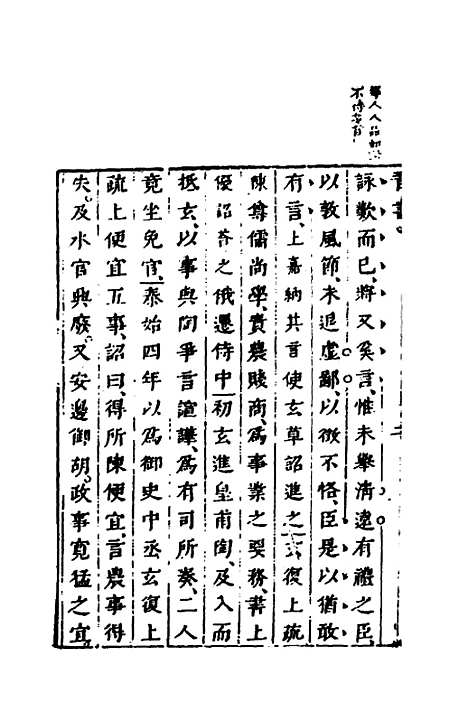 不待
詠歎而已、將又奚言、惟未舉清遠有禮之臣、
以敦風節、未退虛鄙、以徵不恪、臣是以猶敢
有言、上嘉納其言使玄草詔進之玄復上疏
陳尊儒尚學、貴農賤商、為事業之要務、書上
優詔荅之俄遷侍中初玄進皇甫陶、及入而
抵玄、以事與陶爭言諠譁、為有司所奏、二人
竟坐免官、泰始四年以為御史中丞玄復上
疏上便宜五事、詔曰、得所陳便宜、言農事得
失、及水官興廢、又安邊御胡、政事寬猛之宜、